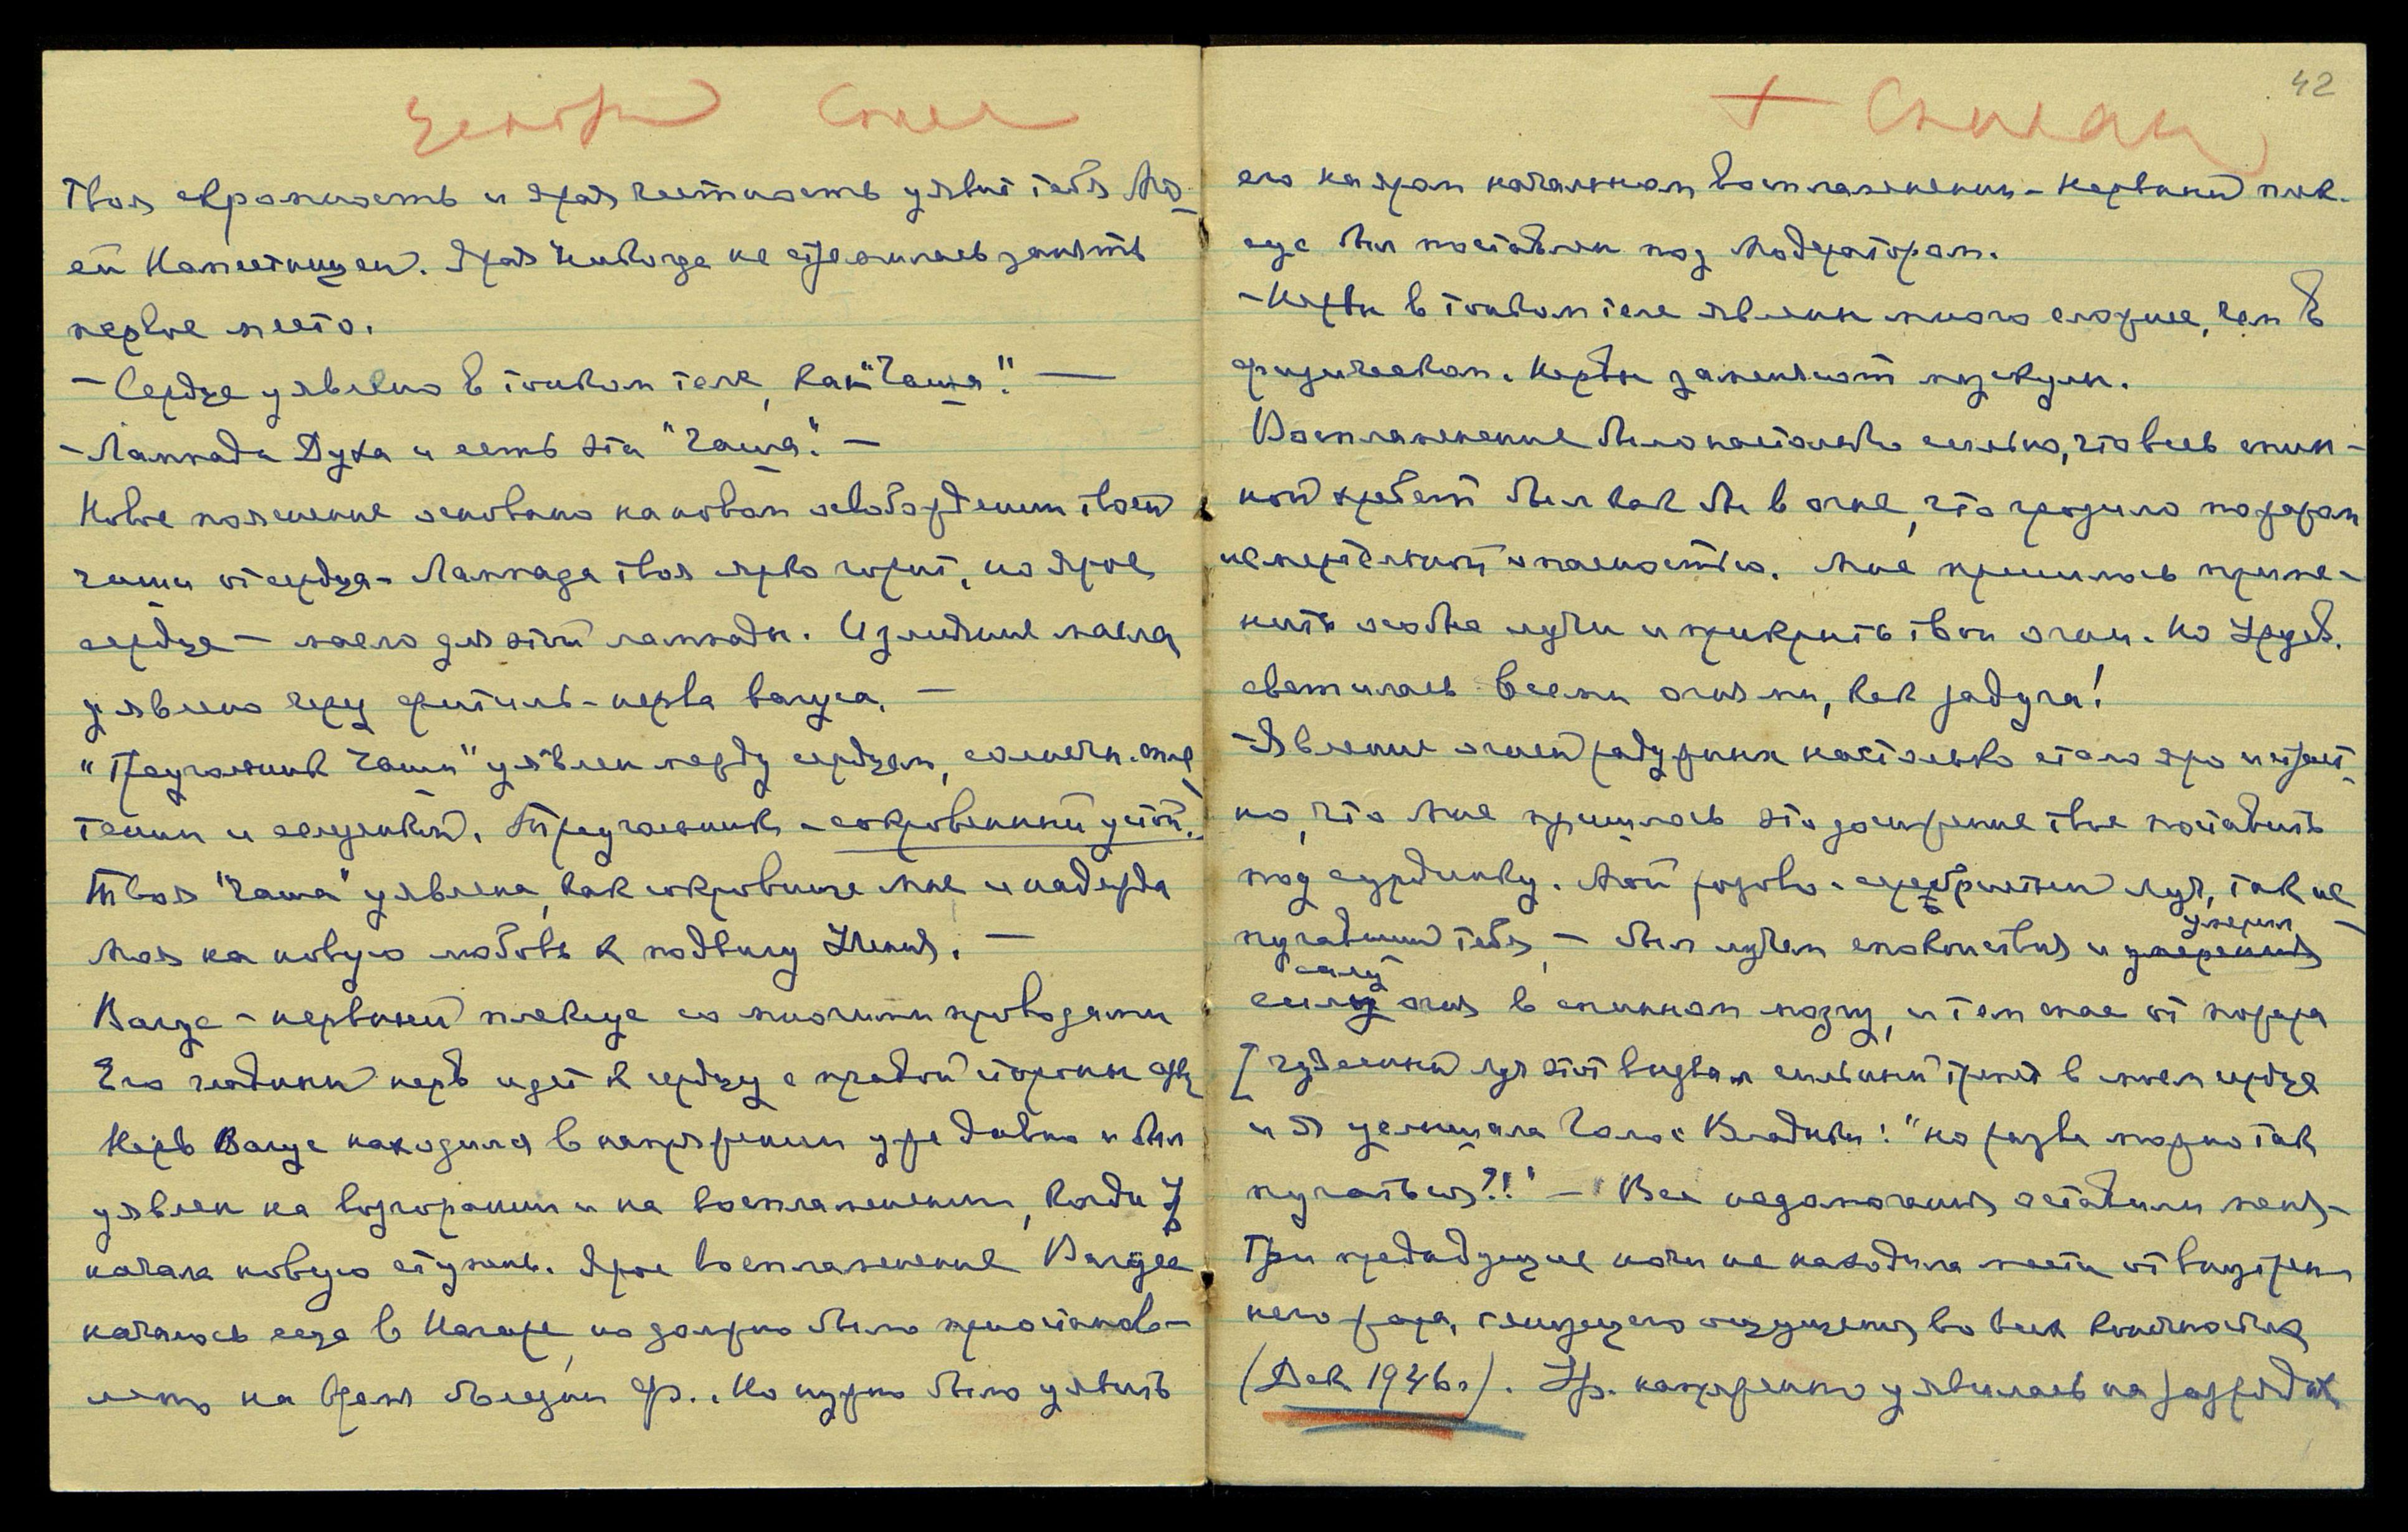 42
Твоя скромность и ярая честность уявит тебя Мо-
ей Наместницей. Ярая никогда не стремилась занять
первое место.
– Сердце уявлено в тонком теле, как "Чаша". —
– Лампада Духа и есть эта "Чаша". –
Новое пояснение основано на новом освобождении твоей
чаши от сердца – Лампада твоя ярко горит, но ярое
сердце – масло для этой лампады. Излияние масла
уявлено через фитиль – нерва вагуса. –
"Треугольник Чаши" уявлен между сердцем, солнечн. спле
тением и селезенкой. Треугольник – сокровенный устой.
Твоя "Чаша" уявлена, как сокровище мне и надежда
Моя на новую любовь к подвигу Учения. –
Вагус – нервный плексус со многими проводами
Его главный нерв идет к сердцу с правой стороны
Нерв Вагус находился в напряжении уже давно и был
уявлен на возгорании и на воспламенении, когда У
начала новую ступень. Ярое воспламенение Вагуса
началось еще в Нагаре, но должно было приостанов-
лено на время болезни Ф.. Но нужно было уявить
+
его на яром начальном воспламенении – нервный плек.
сус был поставлен под модератором.
– Нервы в тонком теле явлены много сложнее, чем в
физическом. Нервы заменяют мускулы.
Воспламенение было настолько сильно, что весь спин-
ной хребет был как бы в огне, что грозило пожаром
и смертельной опасностью. Мне пришлось приме-
нить особые лучи и прикрыть твои огни. Но Урусв.
светилась всеми огнями, как радуга!
– Явление огней радужных настолько стало яро и страст
но, что Мне пришлось это достижение твое поставить
под сурдинку. Мой розово-серебристый луч, так не
пугавший тебя, – был лучем спокойствия и умерил
силу огня в спинном мозгу, и тем спас от пожара
[чудесный луч этот вызвал сильный трепет в моем сердце
и я услышала Голос Владыки: "но разве можно так
пугаться?!" – Все недомогания оставили меня –
Три предыдущие ночи не находила места от внутрен
него жара, тянущего ощущения во всех конечностях
(Дек 1946 г.). Ур. напряженно уявилась на разрядах